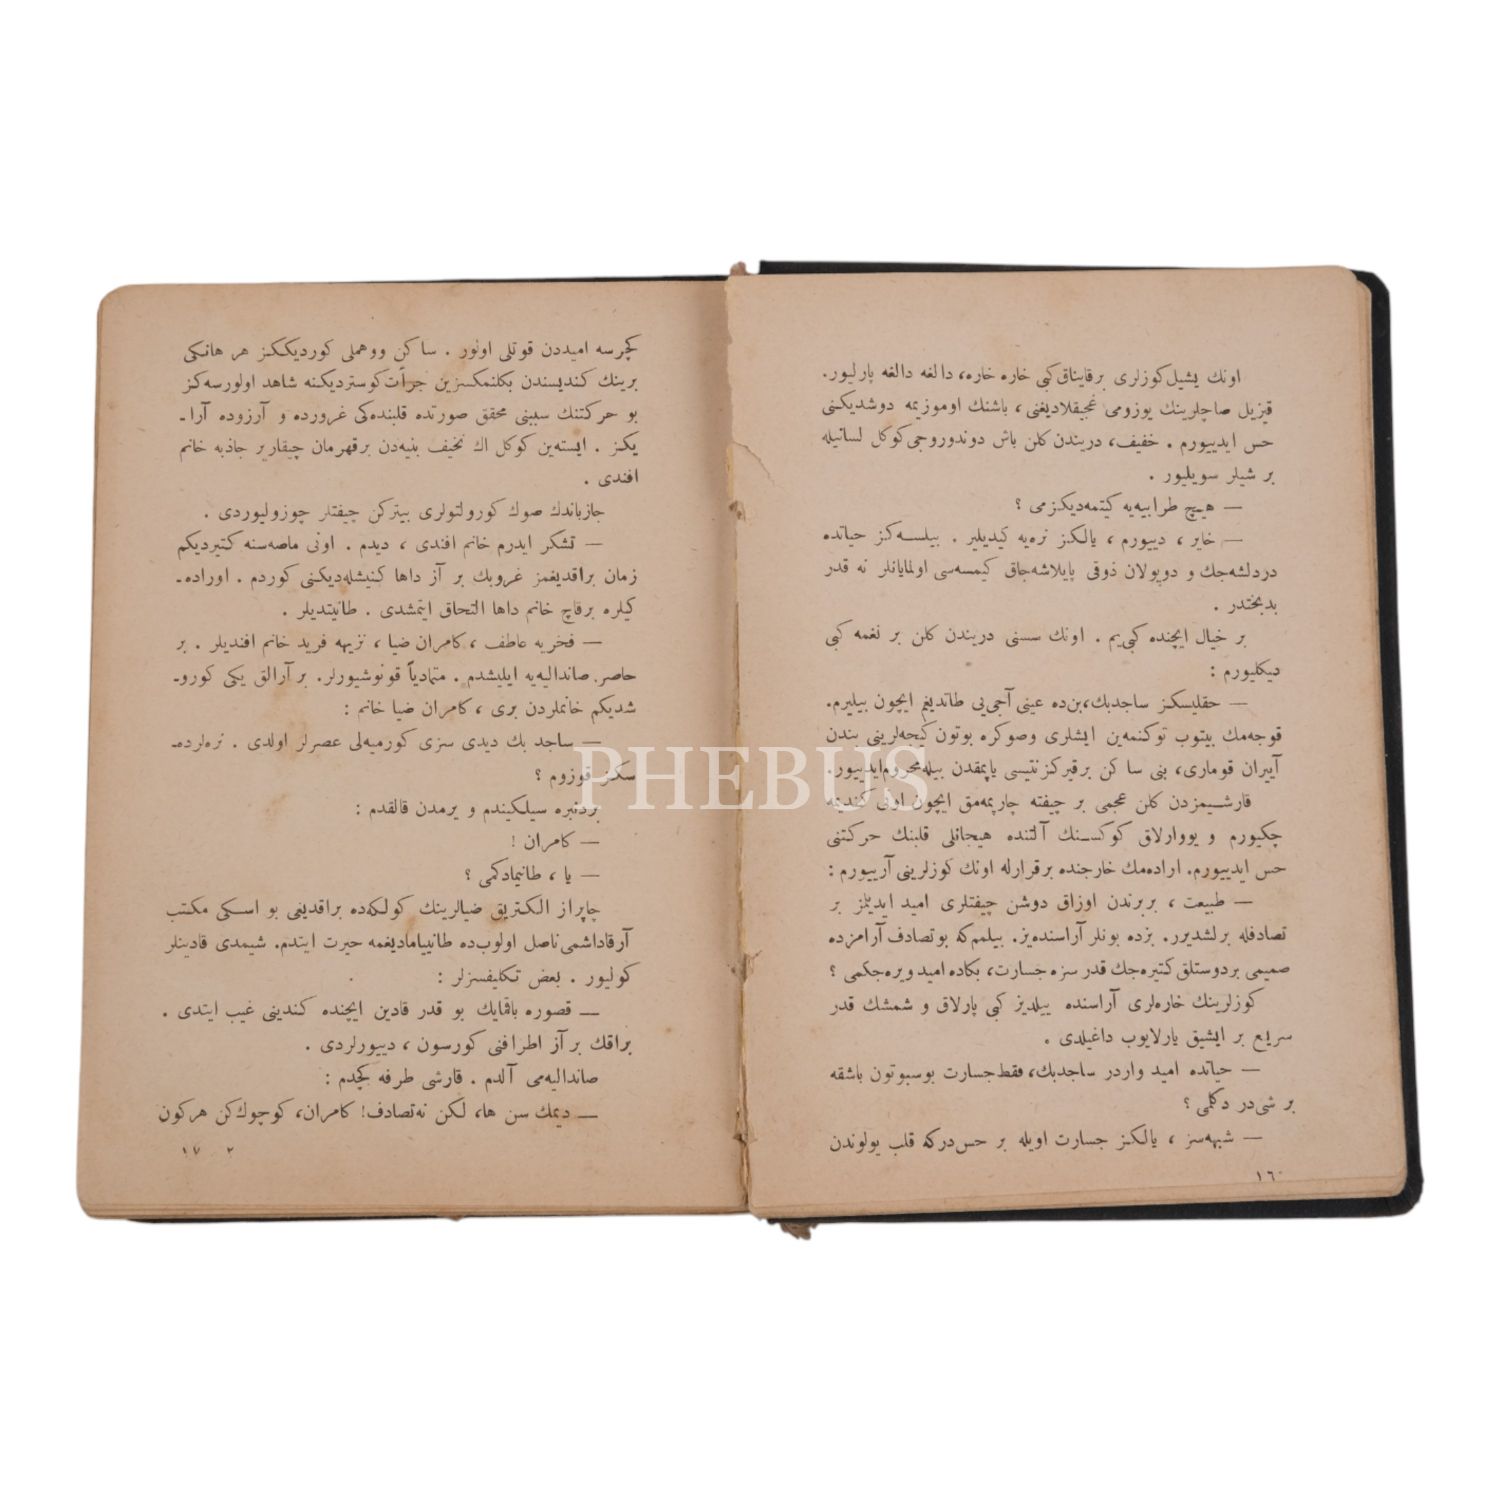 اونك يشيل كوزلرى بر قايناق كبى خاره خاره، دالغه دالغه پارليور.
قيزيل صاچلرينك يوزومى غجيقلاديغنى، باشنك اوموزيمه دوشديكنى
حس ايدييورم . خفيف، دريندن كلن باش دوندوروجى كوكل لسانيله
بر شيلر سويليور .
— هيچ طرابيه‌يه كيتمه‌ديكزمى ؟
— خاير ، دييورم ، يالكز نره‌يه كيديلير . بيلسه‌كز حياتده
دردلشه‌جك و دويولان ذوقى پايلاشه‌جاق كيمسه‌سى اولمايانلر نه قدر
بدبختدر .
بر خيال ايچنده كبى‌يم . اونك سسنى دريندن كلن بر نغمه كبى
ديكليورم :
— حقليسكز ساجدبك، بن‌ده عينى آجى‌يى طانديغم ايچون بيليرم.
قوجه‌مك بيتوب توكنمه‌ين ايشلرى وصوكره بوتون كيجه‌لرينى بندن
آييران قومارى، بنى ساكن بر قير كزنتيسى ياپمقدن بيله محروم ايدييور.
قارشيمزدن كلن عجمى بر چيفته چارپمه‌مق ايچون اونى كنديمه
چكيورم و يووارلاق كوكسنك آلتنده هيجانلى قلبنك حركتنى
حس ايدييورم. اراده‌مك خارجنده برقرارله اونك كوزلرينى آرييورم :
— طبيعت ، بربرندن اوزاق دوشن چيفتلرى اميد ايديلمز بر
تصادفله برلشديرر. بزده بونلر آراسنده‌يز. بيلمم كه بو تصادف آرامزده
صميمى بر دوستلق كتيره‌جك قدر سزه جسارت، بكاده اميد ويره‌جكمى ؟
كوزلرينك خاره‌لرى آراسنده ييلديز كبى پارلاق و شمشك قدر
سريع بر ايشيق پارلايوب داغيلدى .
— حياتده اميد واردر ساجدبك، فقط جسارت بوسبوتون باشقه
بر شى‌در دكلمى ؟
— شبهه‌سز ، يالكز جسارت اويله بر حس‌دركه قلب يولوندن
١٦٠
كچرسه اميددن قوتلى اونور . ساكن ووهملى كورديككز هر هانكى
برينك كنديسندن بكلنمكسزين جرأت كوسترديكنه شاهد اولورسه‌كز
بو حركتنك سببنى محقق صورتده قلبنده‌كى غرورده و آرزوده آرا ـ
يكز . ايسته‌ين كوكل اك نحيف بنيه‌دن برقهرمان چيقارير جاذبه خانم
افندى .
جازباندك صوك كورولتولرى بيتركن چيفتلر چوزوليوردى .
— تشكر ايدرم خانم افندى ، ديدم . اونى ماصه‌سنه كتيرديكم
زمان براقديغمز غروبك بر آز داها كنيشله‌ديكنى كوردم . اوراده‌ـ
كيلره برقاچ خانم داها التحاق ايتمشدى . طانيتديلر .
— فخريه عاطف ، كامران ضيا ، نزيهه فريد خانم افنديلر . بر
حاصر صانداليه‌يه ايليشدم . متماديآ قونوشيورلر. بر آرالق يكى كورو‌ـ
شديكم خانملردن برى ، كامران ضيا خانم :
— ساجد بك ديدى سزى كورميه‌لى عصرلر اولدى . نره‌لرده‌ـ
سكز قوزوم ؟
بردنبره سيلكيندم و يرمدن قالقدم :
— كامران !
— يا ، طانيمادكمى ؟
چاپراز الكتريق ضيالرينك كولكه‌ده براقديغى بو اسكى مكتب
آرقاداشمى ناصل اولوب‌ده طانييامادیغمه حيرت ايتدم. شيمدى قادينلر
كوليور . بعض تكليفسزلر :
— قصوره باقمايك بو قدر قادين ايچنده كندينى غيب ايتدى .
براقك بر آز اطرافنى كورسون ، دييورلردى .
صانداليه‌مى آلدم . قارشى طرفه كچدم :
— ديمك سن ها، لكن نه تصادف! كامران، كوچوك‌كن هركون
١٧ . ٢
PHEBUS